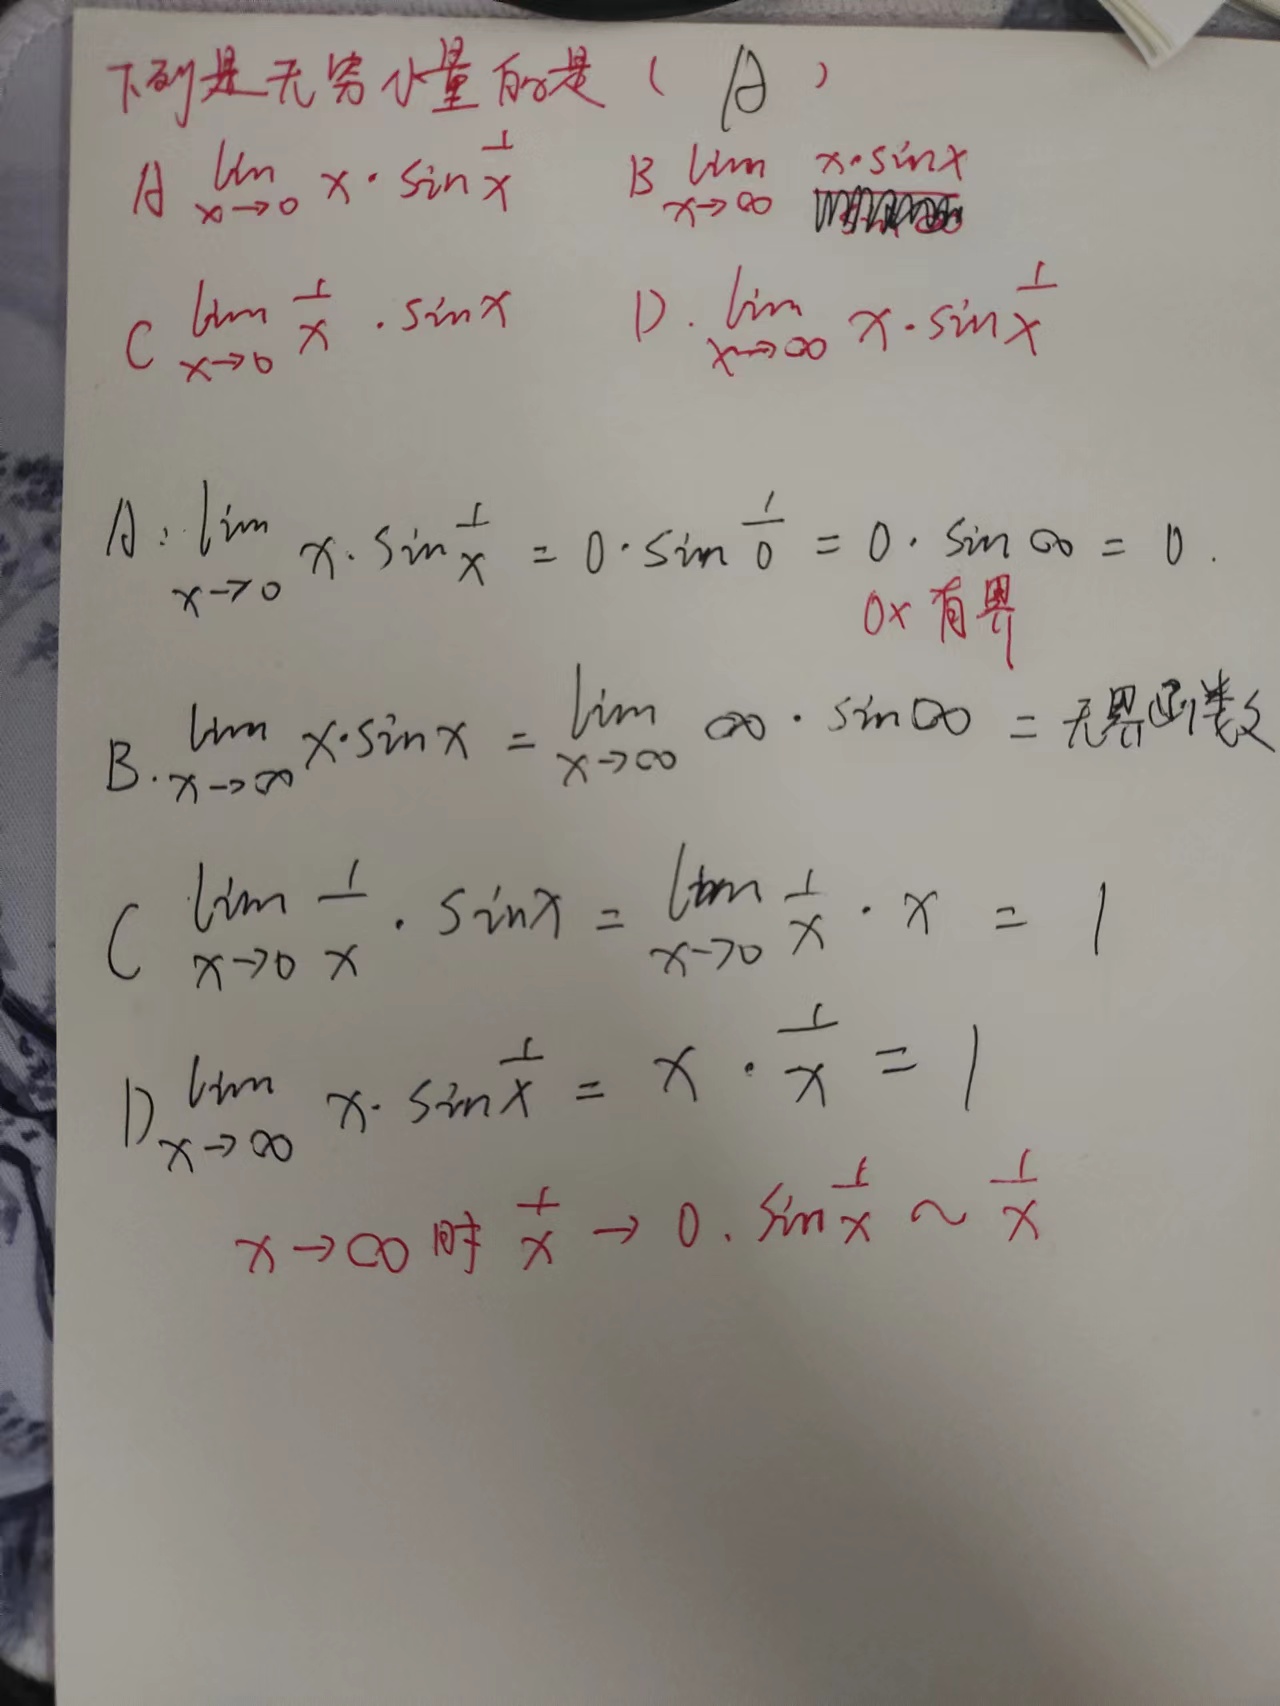 下列是无穷小量的是（ A ）
A lim x→0 x·sin 1/x B lim x→∞ x·sinx
C lim x→0 1/x ·sinx D. lim x→∞ x·sin 1/x
A: lim x→0 x·sin 1/x = 0·sin 1/0 = 0·sin∞ = 0.
0x有界
B. lim x→∞ x·sinx = lim x→∞ ∞·sin∞ = 无界函数
C lim x→0 1/x ·sinx = lim x→0 1/x · x = 1
D lim x→∞ x·sin 1/x = x · 1/x = 1
x→∞时 1/x → 0. sin 1/x ~ 1/x